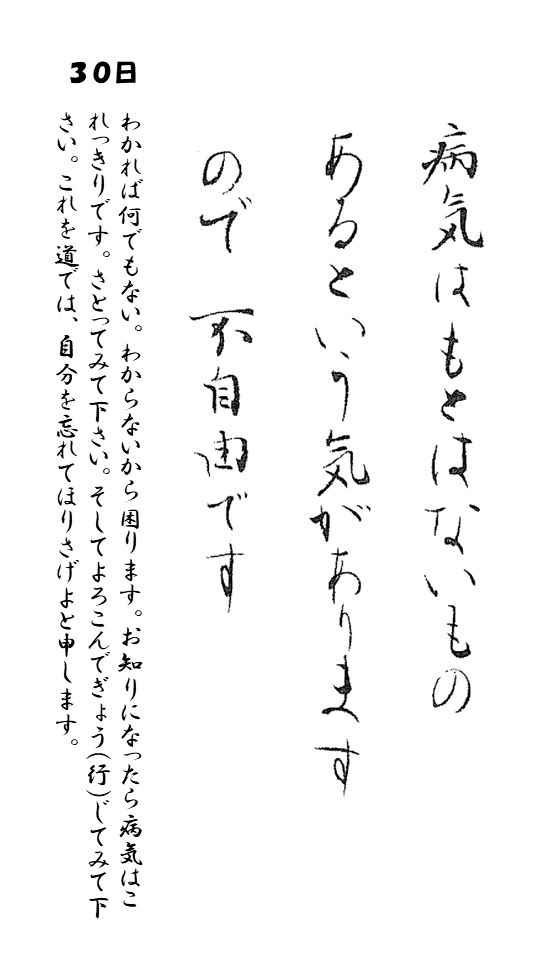 病気はもとはないもの
あるという気があります
ので 不自由です
30日
わかれば何でもない。わからないから困ります。お知りになったら病気はこ
れっきりです。さとってみて下さい。そしてよろこんでぎょう(行)じてみて下
さい。これを道では、自分を忘れてほりさげよと申します。